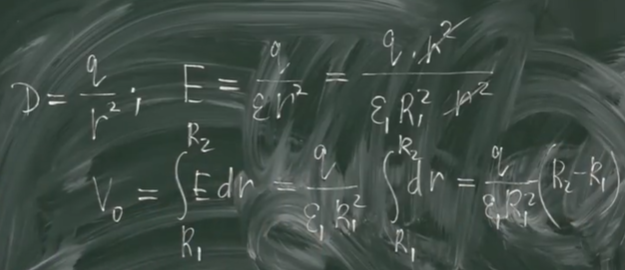 D = q/r²; E = q/εr² = q·r²/ε₁R₁² r²
V₀ = ∫_{R₁}^{R₂} E dr = q/ε₁R₁² ∫_{R₁}^{R₂} dr = q/ε₁R₁² (R₂-R₁)